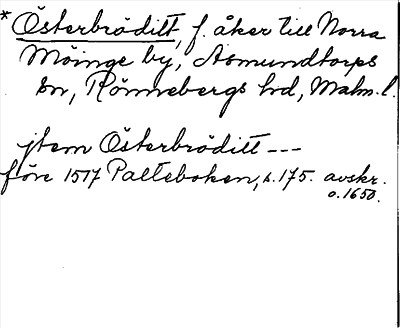 * Österbröditt, f. åker till Norra
Möinge by, Asmundtorps
sn, Rönnebergs hd, Malm. l.
jtem Österbröditt ---
före 1517 Palteboken, s. 175. avskr.
o. 1650.